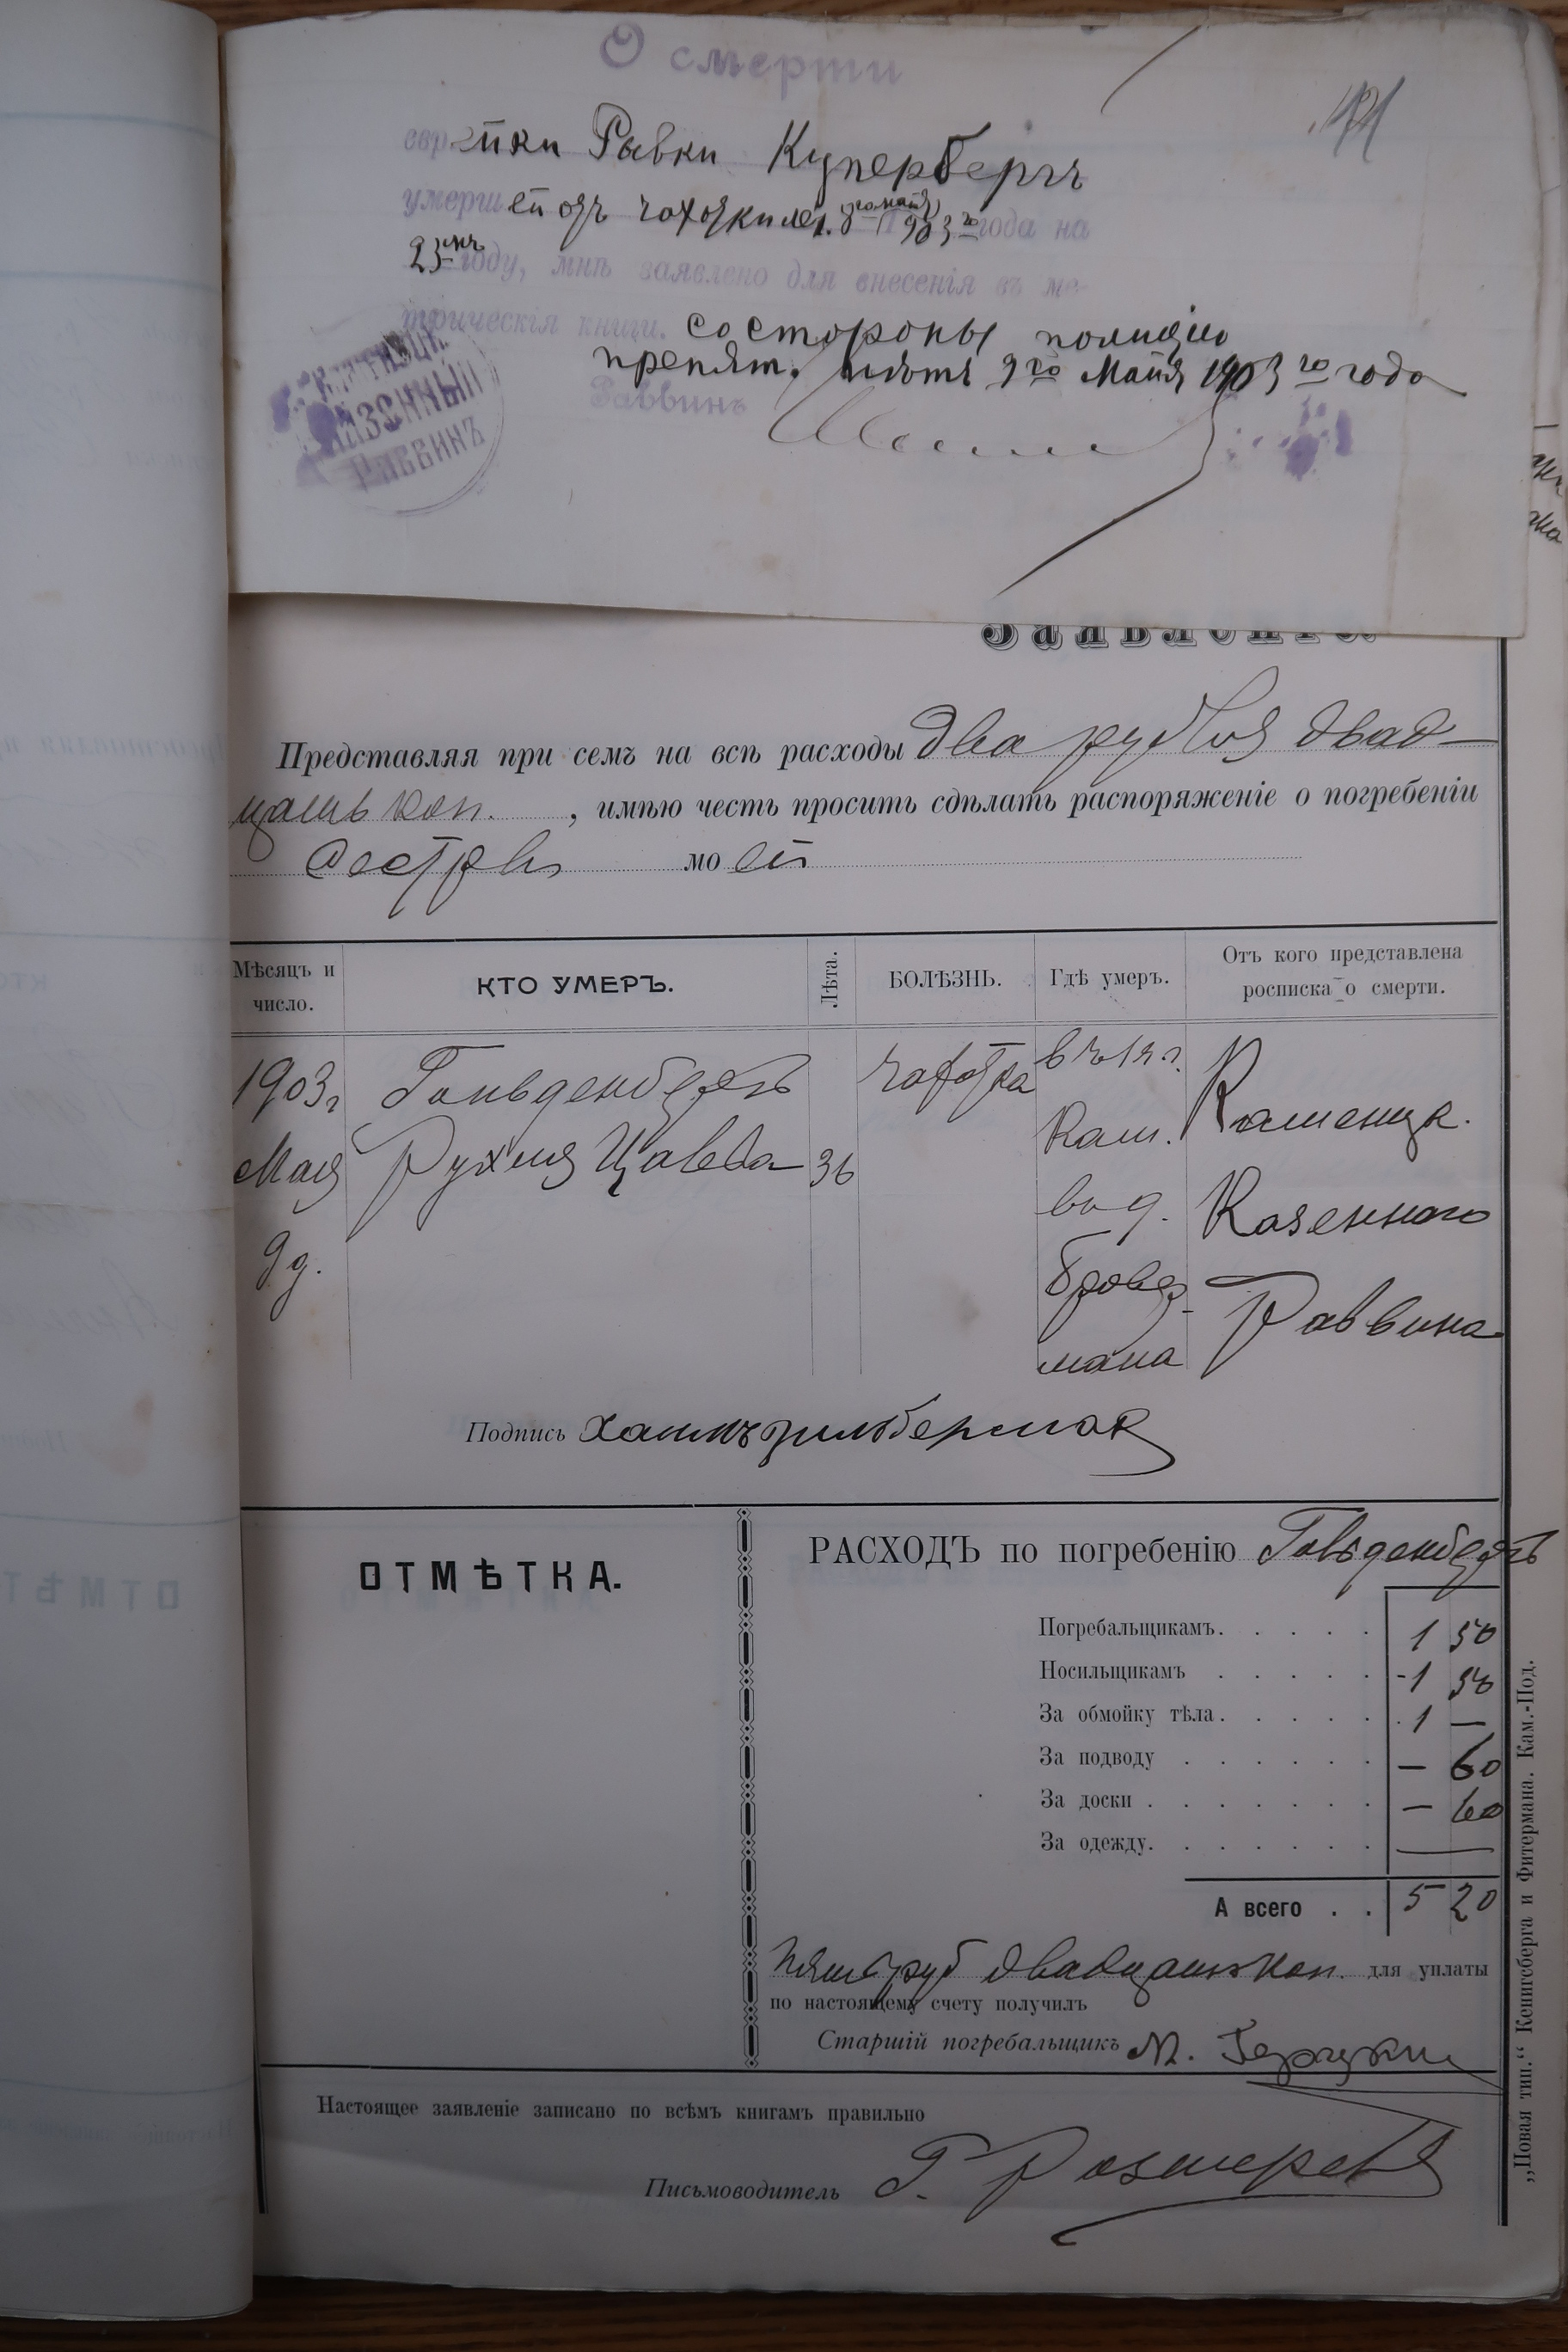 О смерти
еврейки Рывки Купербергъ
умершей отъ чахотки 8го мая 1903го года на
23мъ году, мнѣ заявлено для внесенія въ ме-
трическія книги. со стороны полиціи
препят. нѣтъ 9го Мая 1903го года
Раввинъ
КАЗЕННЫЙ
РАВВИНЪ
Заявленіе.
Представляя при семъ на всѣ расходы два рубля двад-
цать коп. , имѣю честь просить сдѣлать распоряженіе о погребеніи
сестры моей
Мѣсяцъ и число. КТО УМЕРЪ. Лѣта. БОЛѢЗНЬ. Гдѣ умеръ. Отъ кого представлена росписка о смерти.
1903г Гольденбергъ чахотка Каменецк.
Мая Рухля Цавва 36 Казеннаго
9д. Раввина
Бровер-
мана
Подпись Хаимъ Зильберман
ОТМѢТКА.
РАСХОДЪ по погребенію Гольденбергъ
Погребальщикамъ. 1 50
Носильщикамъ 1 50
За обмойку тѣла. 1 —
За подводу — 60
За доски — 60
За одежду. —
А всего 5 20
Пять руб двадцать коп. для уплаты
по настоящему счету получилъ
Старшій погребальщикъ М.
Настоящее заявленіе записано по всѣмъ книгамъ правильно
Письмоводитель Г.
„Новая тип.“ Кенигсберга и Фитермана. Кам.-Под.